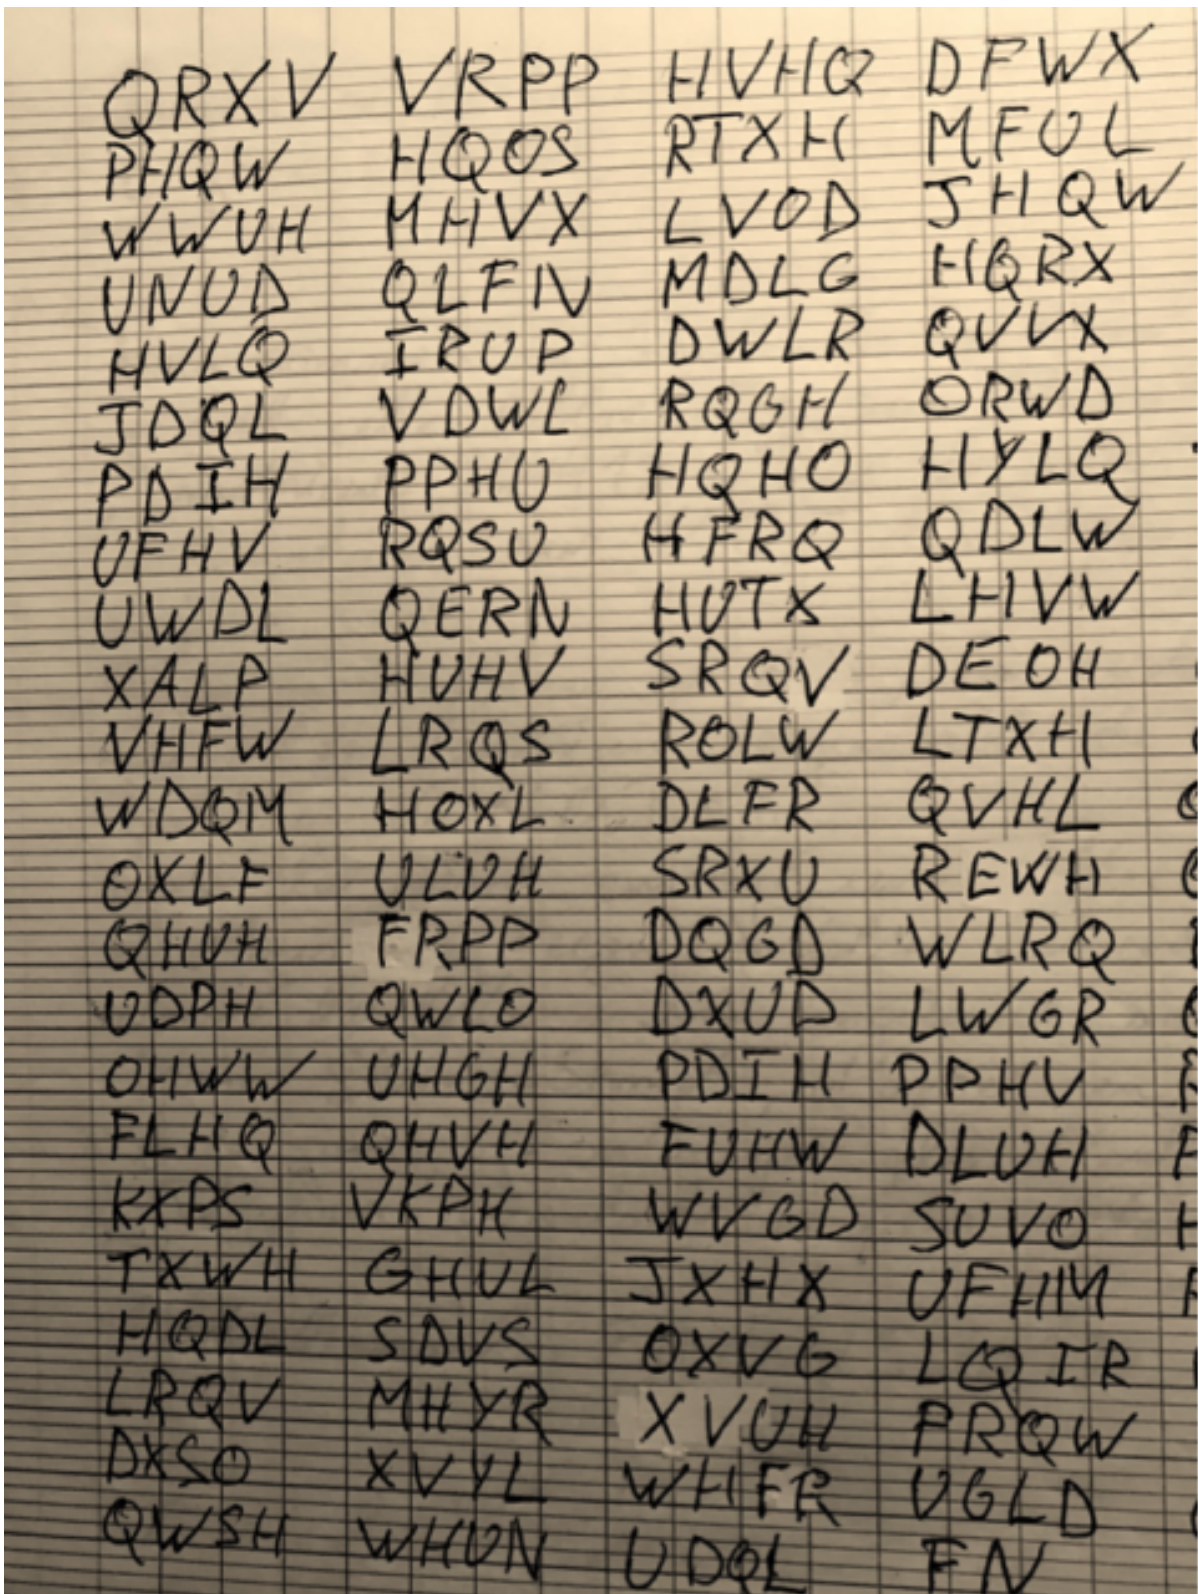 QRXV VRPP HVHQ DFWX
PHQW HQOS RTXH MFUL
WWUH MHVX LVOD JHQW
UNUD QLFN MDLG HQRX
HVLQ IRUP DWLR QVVX
JDQL VDWL RQGH ORWD
PDIH PPHU HQHO HYLQ
UFHV RQSU HFRQ QDLW
UWDL QERN HUTX LHVW
XALP HUHV SRQV DEOH
VHFW LRQS ROLW LTXH
WDQM HOXL DLFR QVHL
OXLF ULUH SRXU REWH
QHUH FRPP DQGD WLRQ
UDPH QWLO DXUD LWGR
OHWW UHGH PDIH PPHV
FLHQ QHVH FUHW DLUH
KXPS VKPH WVGD SUVO
TXWH GHUL JXHX UFHM
HQDL SDVS OXVG LQIR
LRQV MHYR XVUH PRQW
DXSO XVYL WHFR UGLD
QWSH WHUN UDQL FN